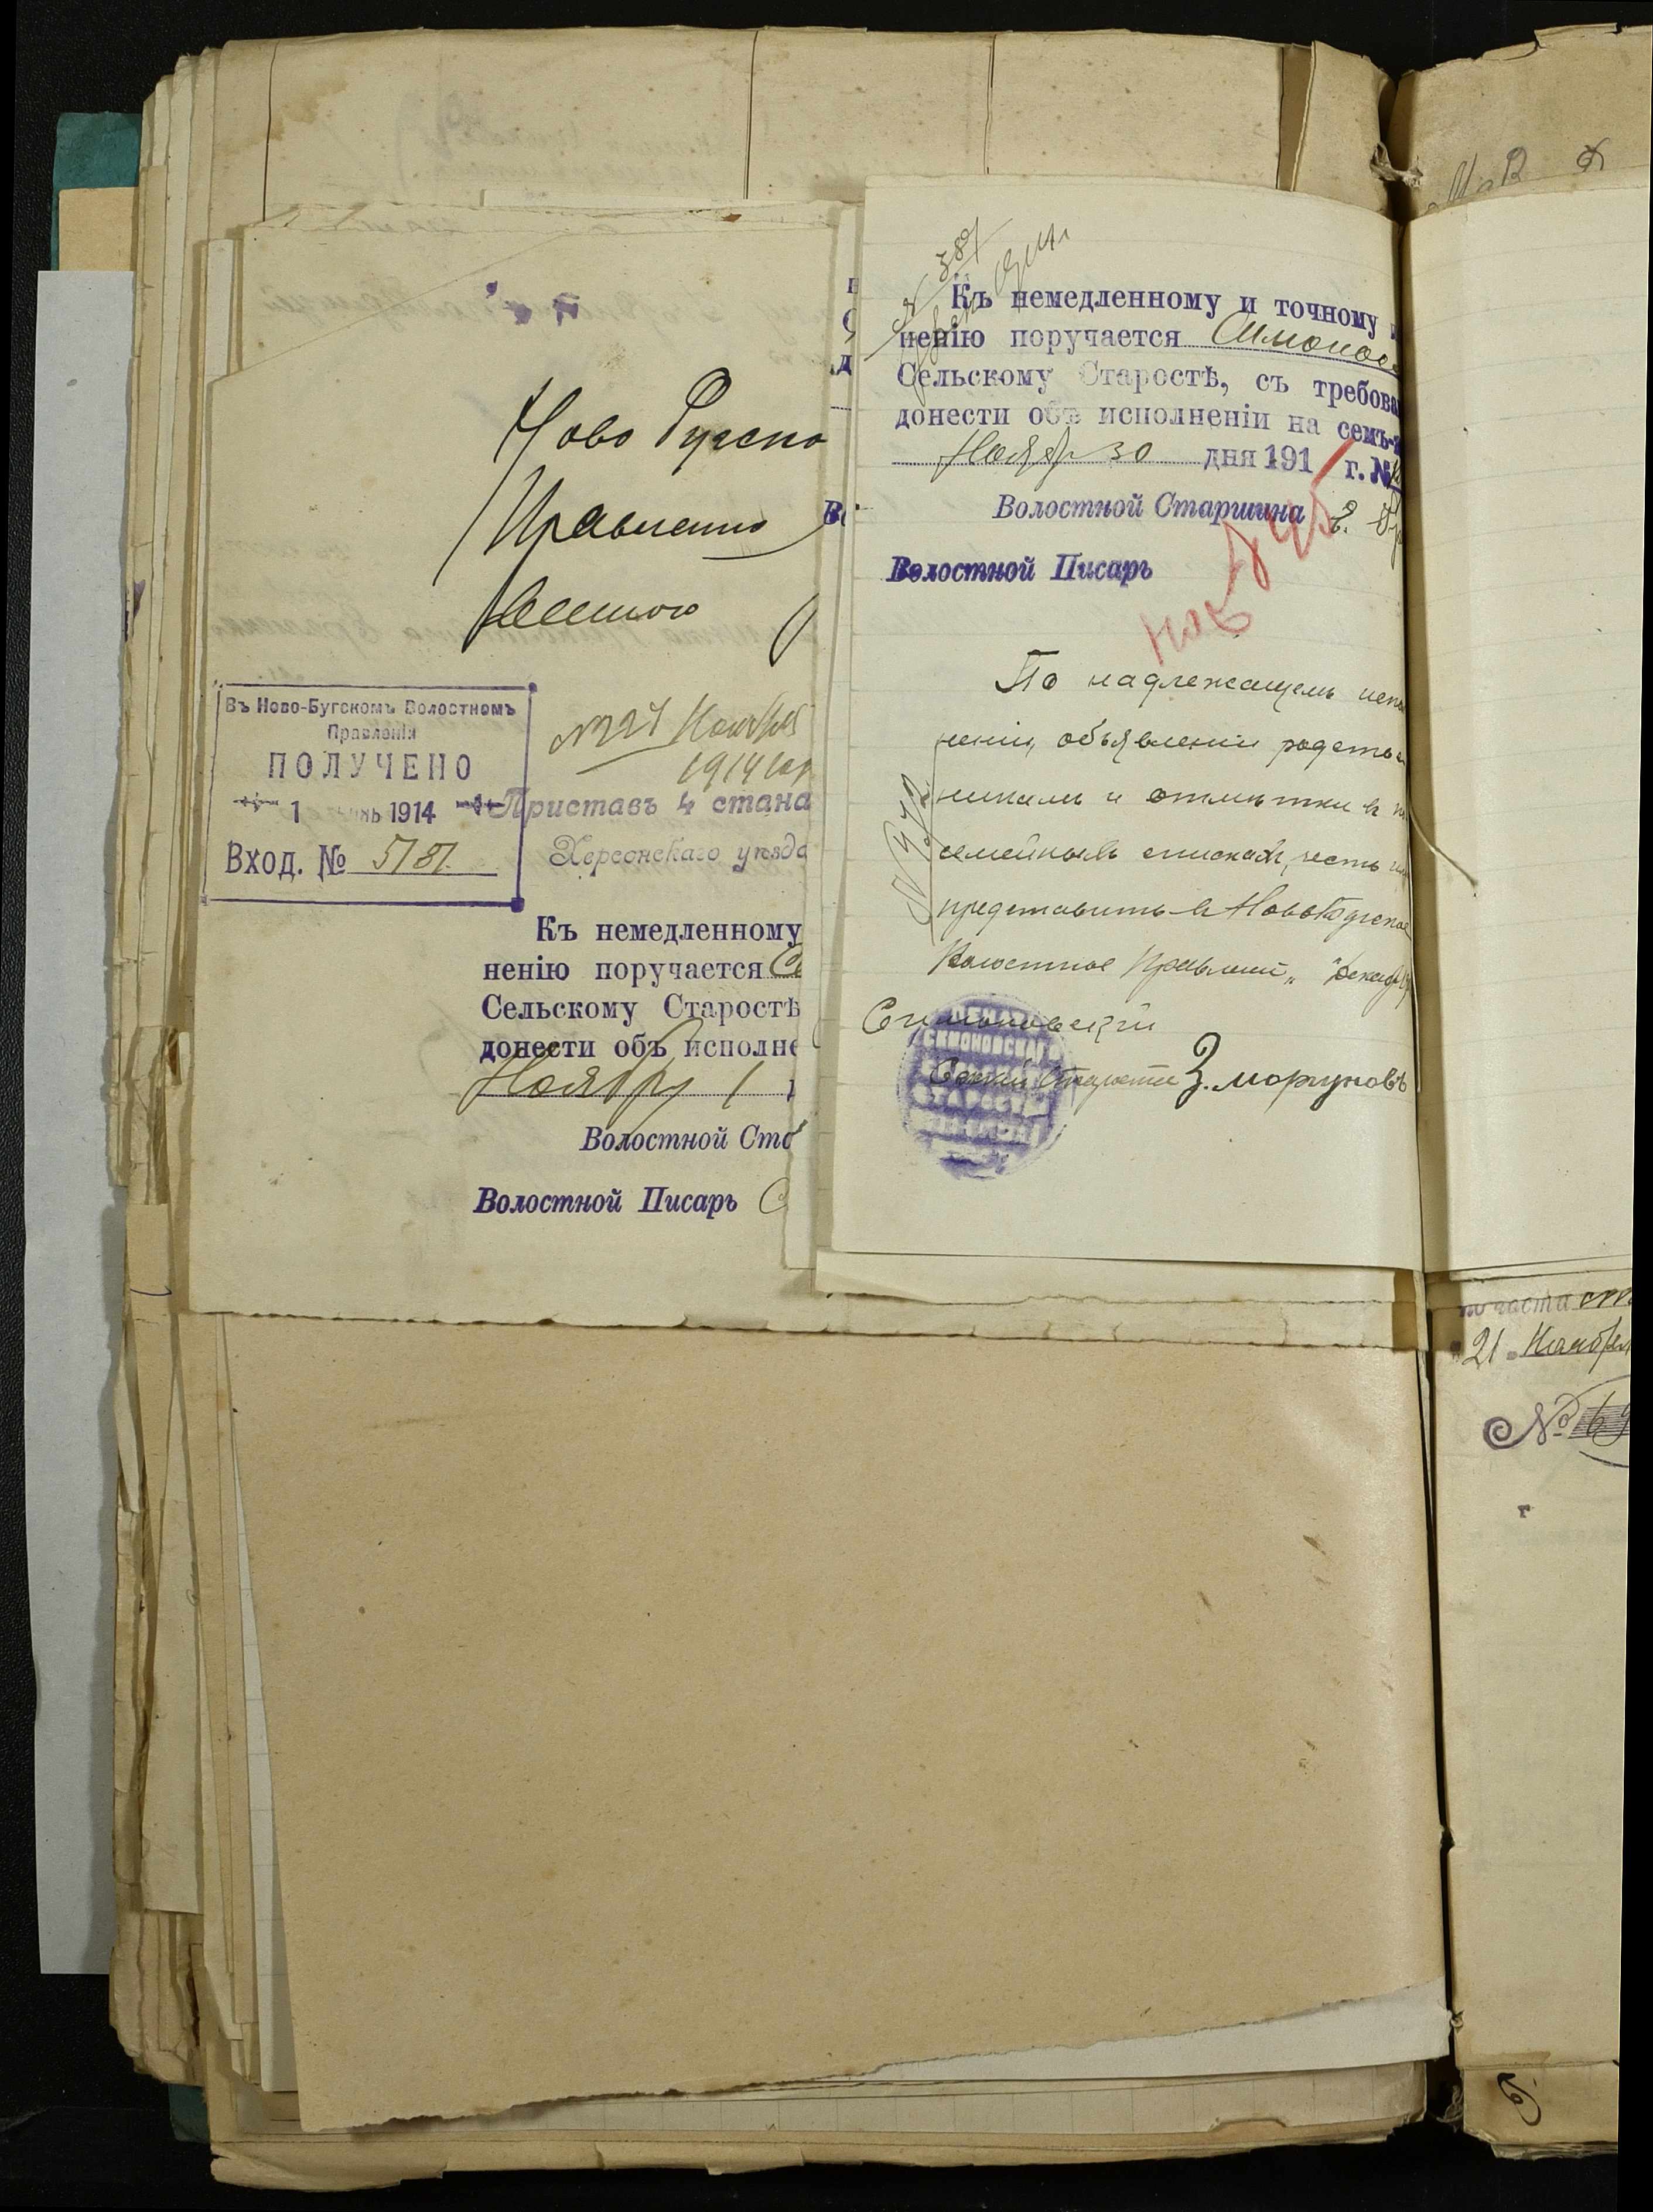 Ново Бугско
Правленiю
Въ Ново-Бугскомъ Волостномъ
Правленiи
ПОЛУЧЕНО
1 1914
Вход. № 5181.
№ 227 Ноября
1914 го
Приставъ 4 стана
Херсонскаго уѣзда
Къ немедленному
ненію поручается
Сельскому Старостѣ
донести объ исполне
Ноября 1
Волостной Ста
Волостной Писарь
Къ немедленному и точному
ненію поручается Симонов
Сельскому Старостѣ, съ требова
донести объ исполненіи на семъ
Ноября 30 дня 191 г. №
Волостной Старшина
Волостной Писарь
По надлежащемъ испо
неніи, объявленіи родств
никамъ и отмѣтки в
семейныхъ спискахъ, честь
представить в НовоБугское
Волостное Правленіе „ " Декабр
Симоновскій
Сельскій Староста З. моргуновъ
СИМОНОВСКАГО
СТАРОСТЫ
М В Д
части
21 Ноября
№ 69